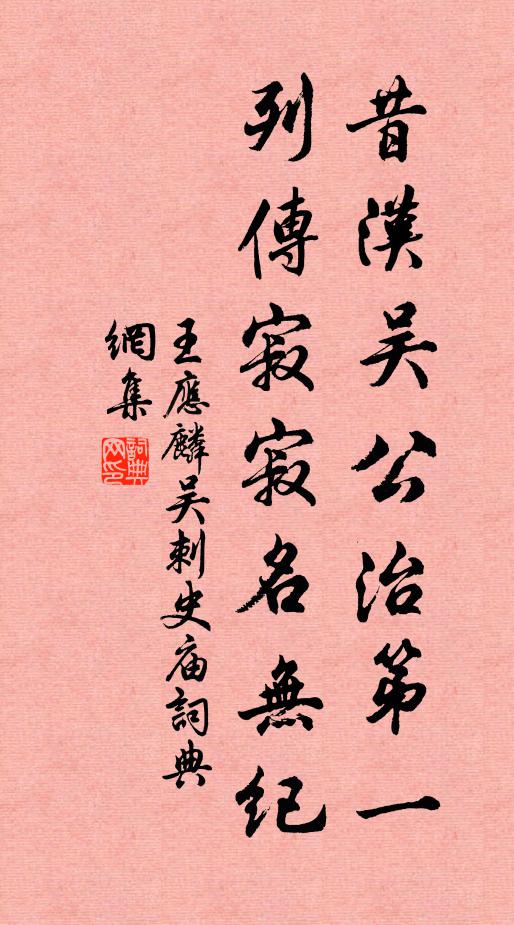 昔漢吴公治第一
列傳寂寂名無紀
王應麟吴刺史庙詞典
網集
詞典
网印